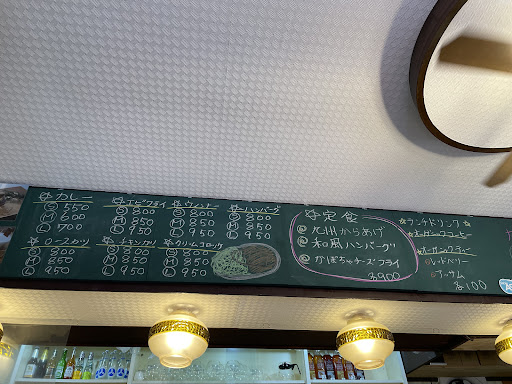 ☆カレー
Ⓢ 550
Ⓜ 600
Ⓛ 700
☆エビフライ
Ⓢ 800
Ⓜ 850
Ⓛ 950
☆ウィンナー
Ⓢ 800
Ⓜ 850
Ⓛ 950
☆ハンバーグ
Ⓢ 800
Ⓜ 850
Ⓛ 950
☆ロースカツ
Ⓢ 800
Ⓜ 850
Ⓛ 950
☆チキンカツ
Ⓢ 800
Ⓜ 850
Ⓛ 950
☆クリームコロッケ
Ⓢ 800
Ⓜ 850
Ⓛ 950
☆定食
@九州からあげ
@和風ハンバーグ
@かぼちゃチーズフライ
各900
☆ランチドリンク☆
☆オーガニックコーヒー
☆オーガニックティー
各100